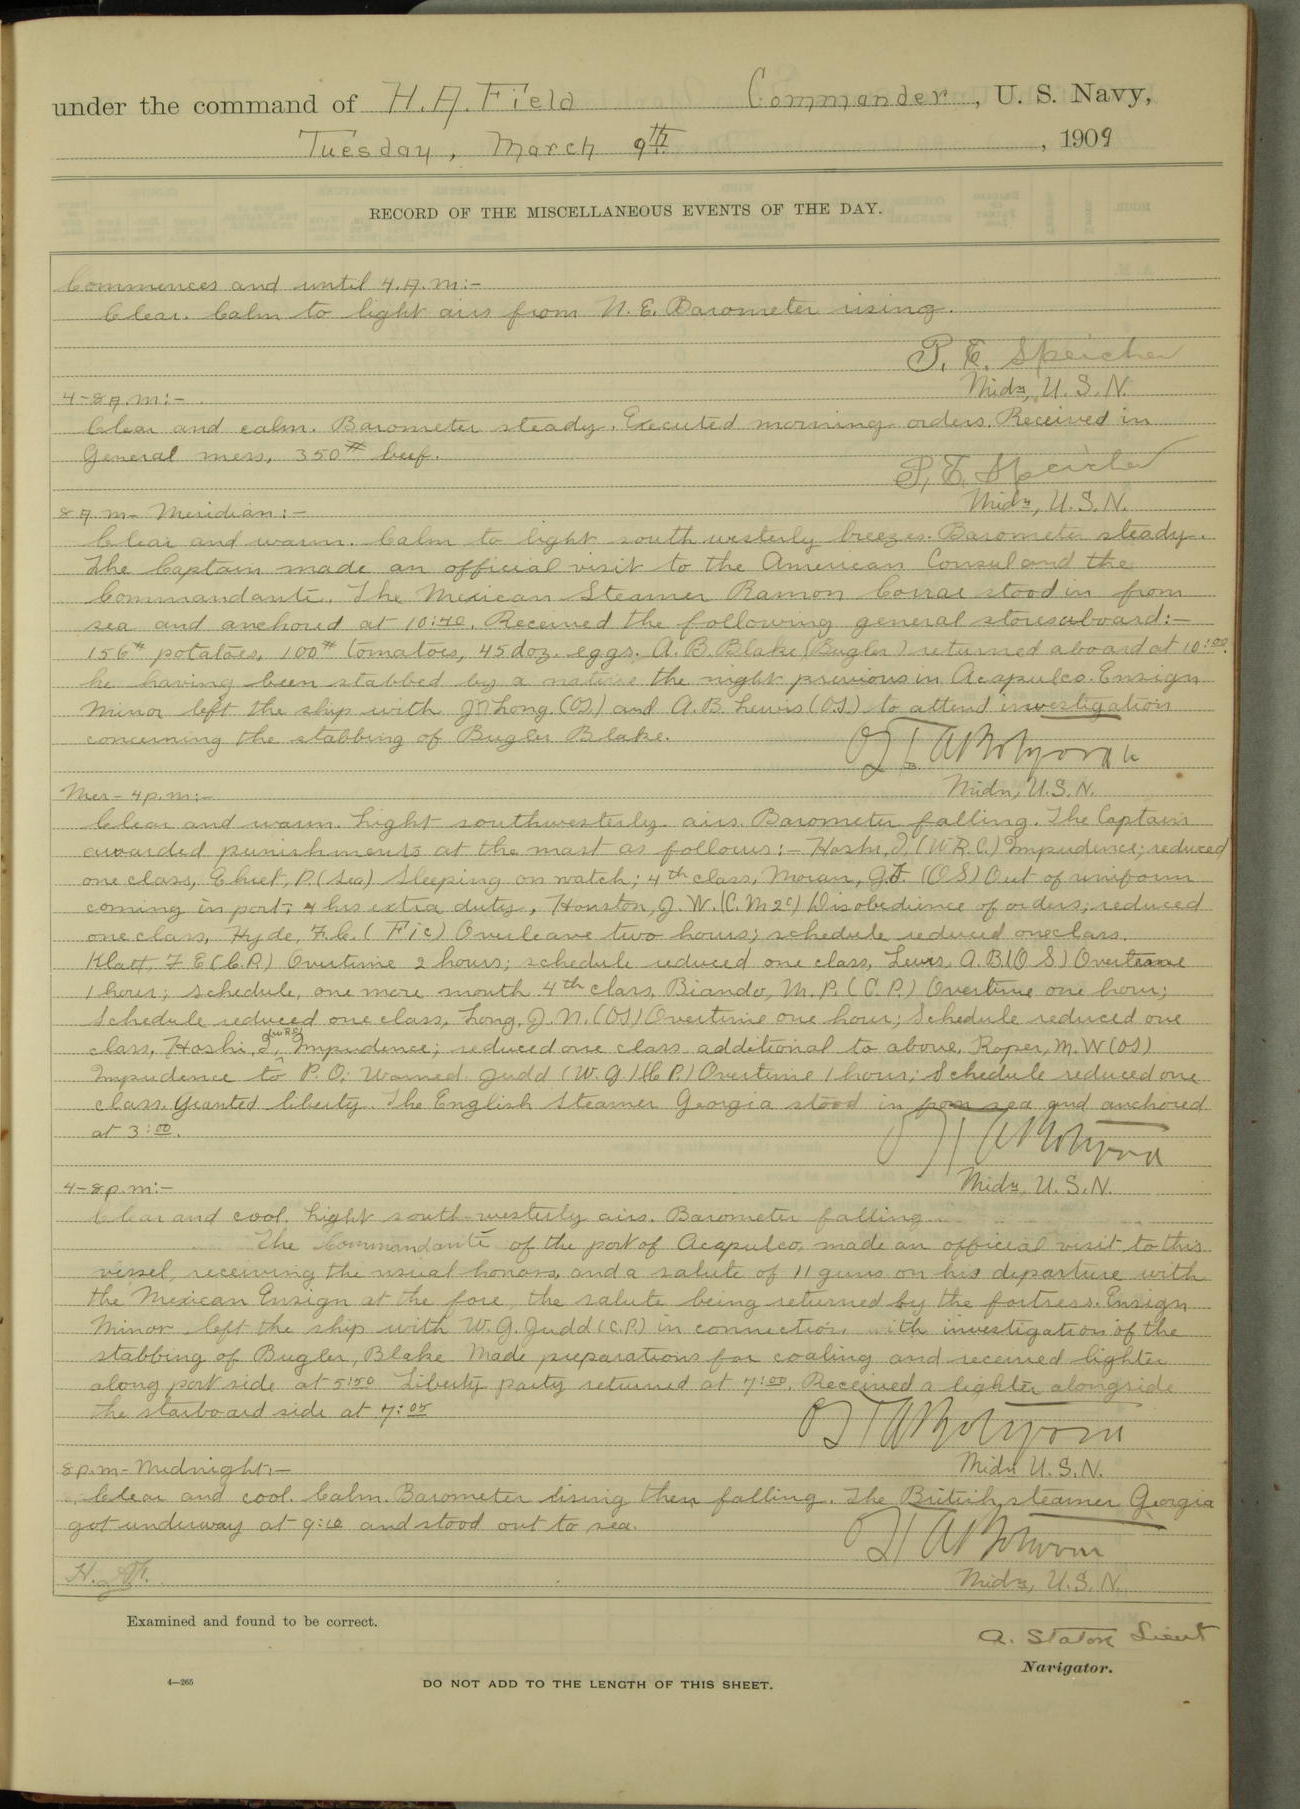 under the command of H. A. Field Commander, U. S. Navy,
Tuesday, March 9th, 1909
RECORD OF THE MISCELLANEOUS EVENTS OF THE DAY.
Commences and until 4. A. m:-
Clear. Calm to light airs from N. E. Barometer rising.
P. E. Speicher
Midn, U. S. N.
4-8 A. m:-
Clear and calm. Barometer steady. Executed morning orders. Received in
General mess, 350# beef.
P. E. Speicher
Midn, U. S. N.
8 A. m- Meridian:-
Clear and warm. Calm to light south westerly breezes. Barometer steady.
The Captain made an official visit to the American Consul and the
Commandante. The Mexican Steamer Ramon Corral stood in from
sea and anchored at 10:40. Received the following general stores aboard:-
156# potatoes, 100# tomatoes, 45 doz. eggs. A. B. Blake (Bugler) returned aboard at 10:00.
he having been stabbed by a native the night previous in Acapulco. Ensign
Minor left the ship with J N Long (OS) and A. B. Lewis (OS) to attend investigation
concerning the stabbing of Bugler Blake.
Midn, U. S. N.
Mer- 4 p. m:-
Clear and warm. Light southwesterly airs. Barometer falling. The Captain
awarded punishments at the mast as follows:- Hoshi, I. (W. R. C.) Impudence; reduced
one class, P. (Sea) Sleeping on watch; 4th class, Moran, G. F. (OS) Out of uniform
coming in port; 4 hrs extra duty, Houston, J. W. (C. M 2c) Disobedience of orders; reduced
one class, Hyde, F. C. (F1c) Overleave two hours; schedule reduced one class.
Klatt, F E (C. P.) Overtime 2 hours; schedule reduced one class, Lewis, A. B (O S) Overtime
1 hour; schedule, one more month 4th class, Biando, M. P. (C. P.) Overtime one hour;
Schedule reduced one class, Long, J. N. (OS) Overtime one hour; Schedule reduced one
class, Hoshi, I, (W.R.C.) Impudence; reduced one class additional to above, Roper, M. W (OS)
Impudence to P. O; Warned. Judd (W. J.) (C P.) Overtime 1 hour; Schedule reduced one
class. Granted liberty. The English Steamer Georgia stood in from sea and anchored
at 3:00.
Midn, U. S. N.
4-8 p. m:-
Clear and cool. Light south-westerly airs. Barometer falling.
The Commandante of the port of Acapulco, made an official visit to this
vessel, receiving the usual honors, and a salute of 11 guns on his departure with
the Mexican Ensign at the fore, the salute being returned by the fortress. Ensign
Minor left the ship with W. J. Judd (C. P.) in connection with investigation of the
stabbing of Bugler, Blake. Made preparations for coaling and received lighter
along port side at 5:50 Liberty party returned at 7:00. Received a lighter alongside
the starboard side at 7:05
Midn U. S. N.
8 p. m- Midnight:-
Clear and cool. Calm. Barometer rising then falling. The British steamer Georgia
got underway at 9:10 and stood out to sea.
Midn, U. S. N.
Examined and found to be correct.
A. Staton Lieut
Navigator.
4—265
DO NOT ADD TO THE LENGTH OF THIS SHEET.